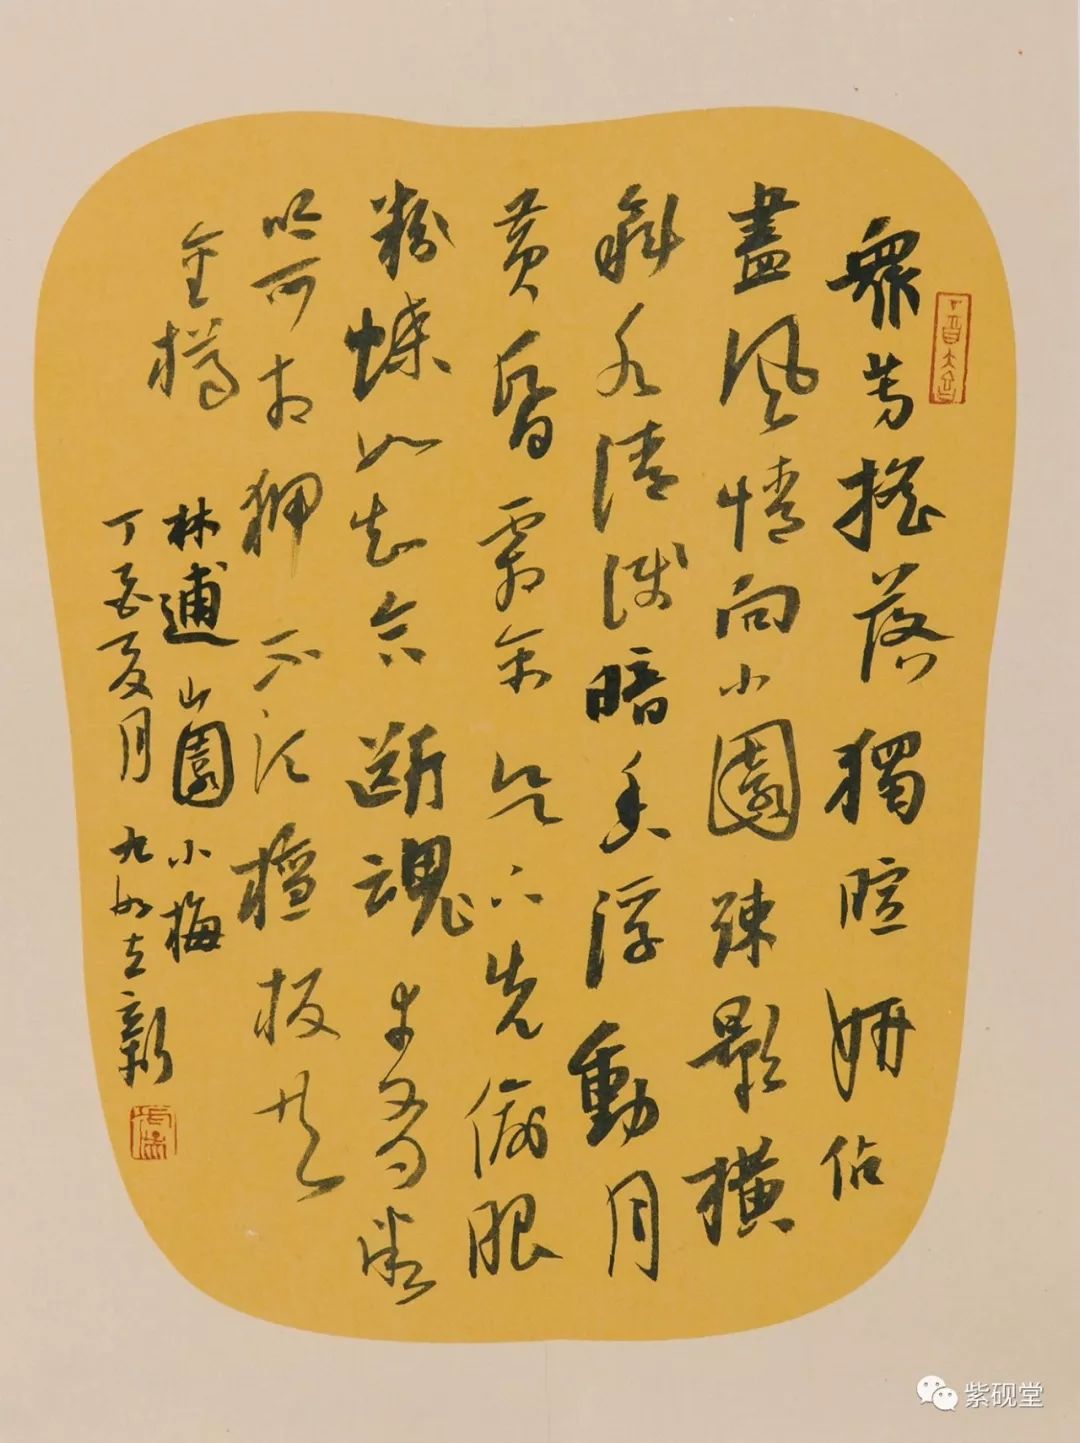 衆芳搖落獨暄妍佔
盡風情向小園疎影橫
斜水清淺暗香浮動月
黃昏霜禽欲下先偷眼
粉蝶如知合斷魂幸有微
吟可相狎不須檀板共
金樽
林逋山園小梅
丁酉夏月 九如立新
紫砚堂